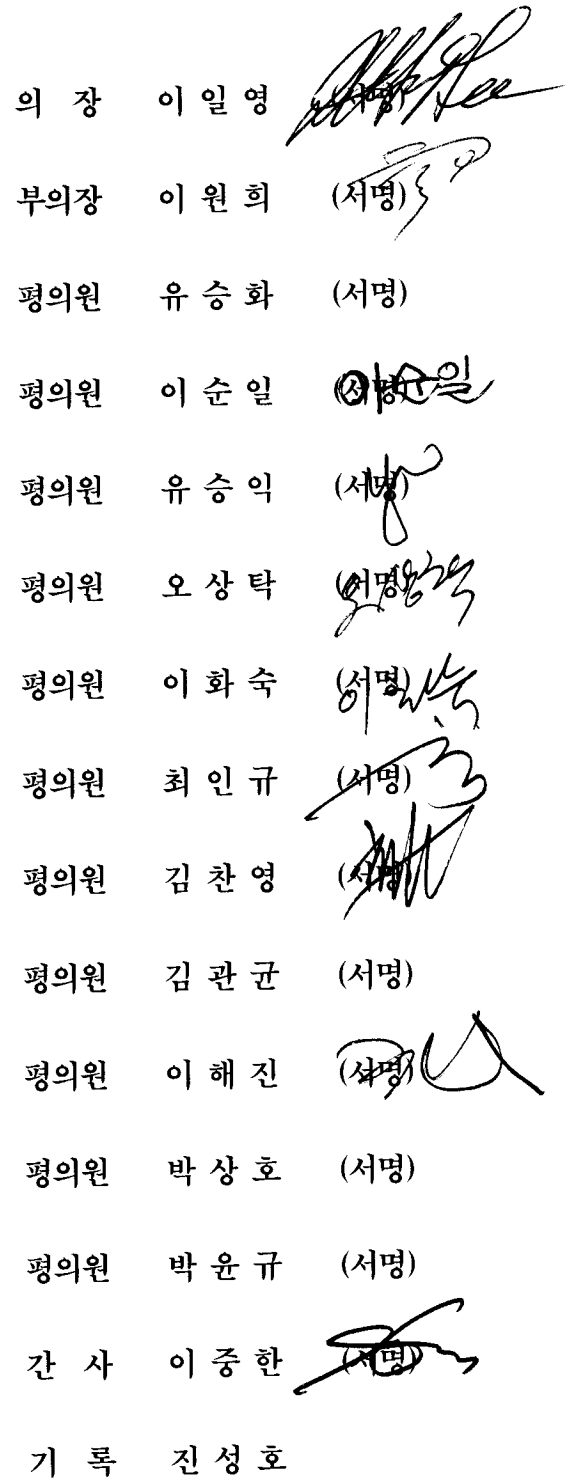 의 장 이 일 영 (서명)
부의장 이 원 희 (서명)
평의원 유 승 화 (서명)
평의원 이 순 일 (서명) 이순일
평의원 유 승 익 (서명)
평의원 오 상 탁 (서명)
평의원 이 화 숙 (서명)
평의원 최 인 규 (서명)
평의원 김 찬 영 (서명)
평의원 김 관 균 (서명)
평의원 이 해 진 (서명)
평의원 박 상 호 (서명)
평의원 박 윤 규 (서명)
간 사 이 중 한 (서명)
기 록 진 성 호